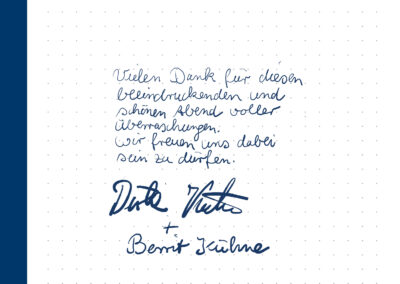 Vielen Dank für diesen
beeindruckenden und
schönen Abend voller
Überraschungen.
Wir freuen uns dabei
sein zu dürfen.
Dirk
+
Berrit Kühne